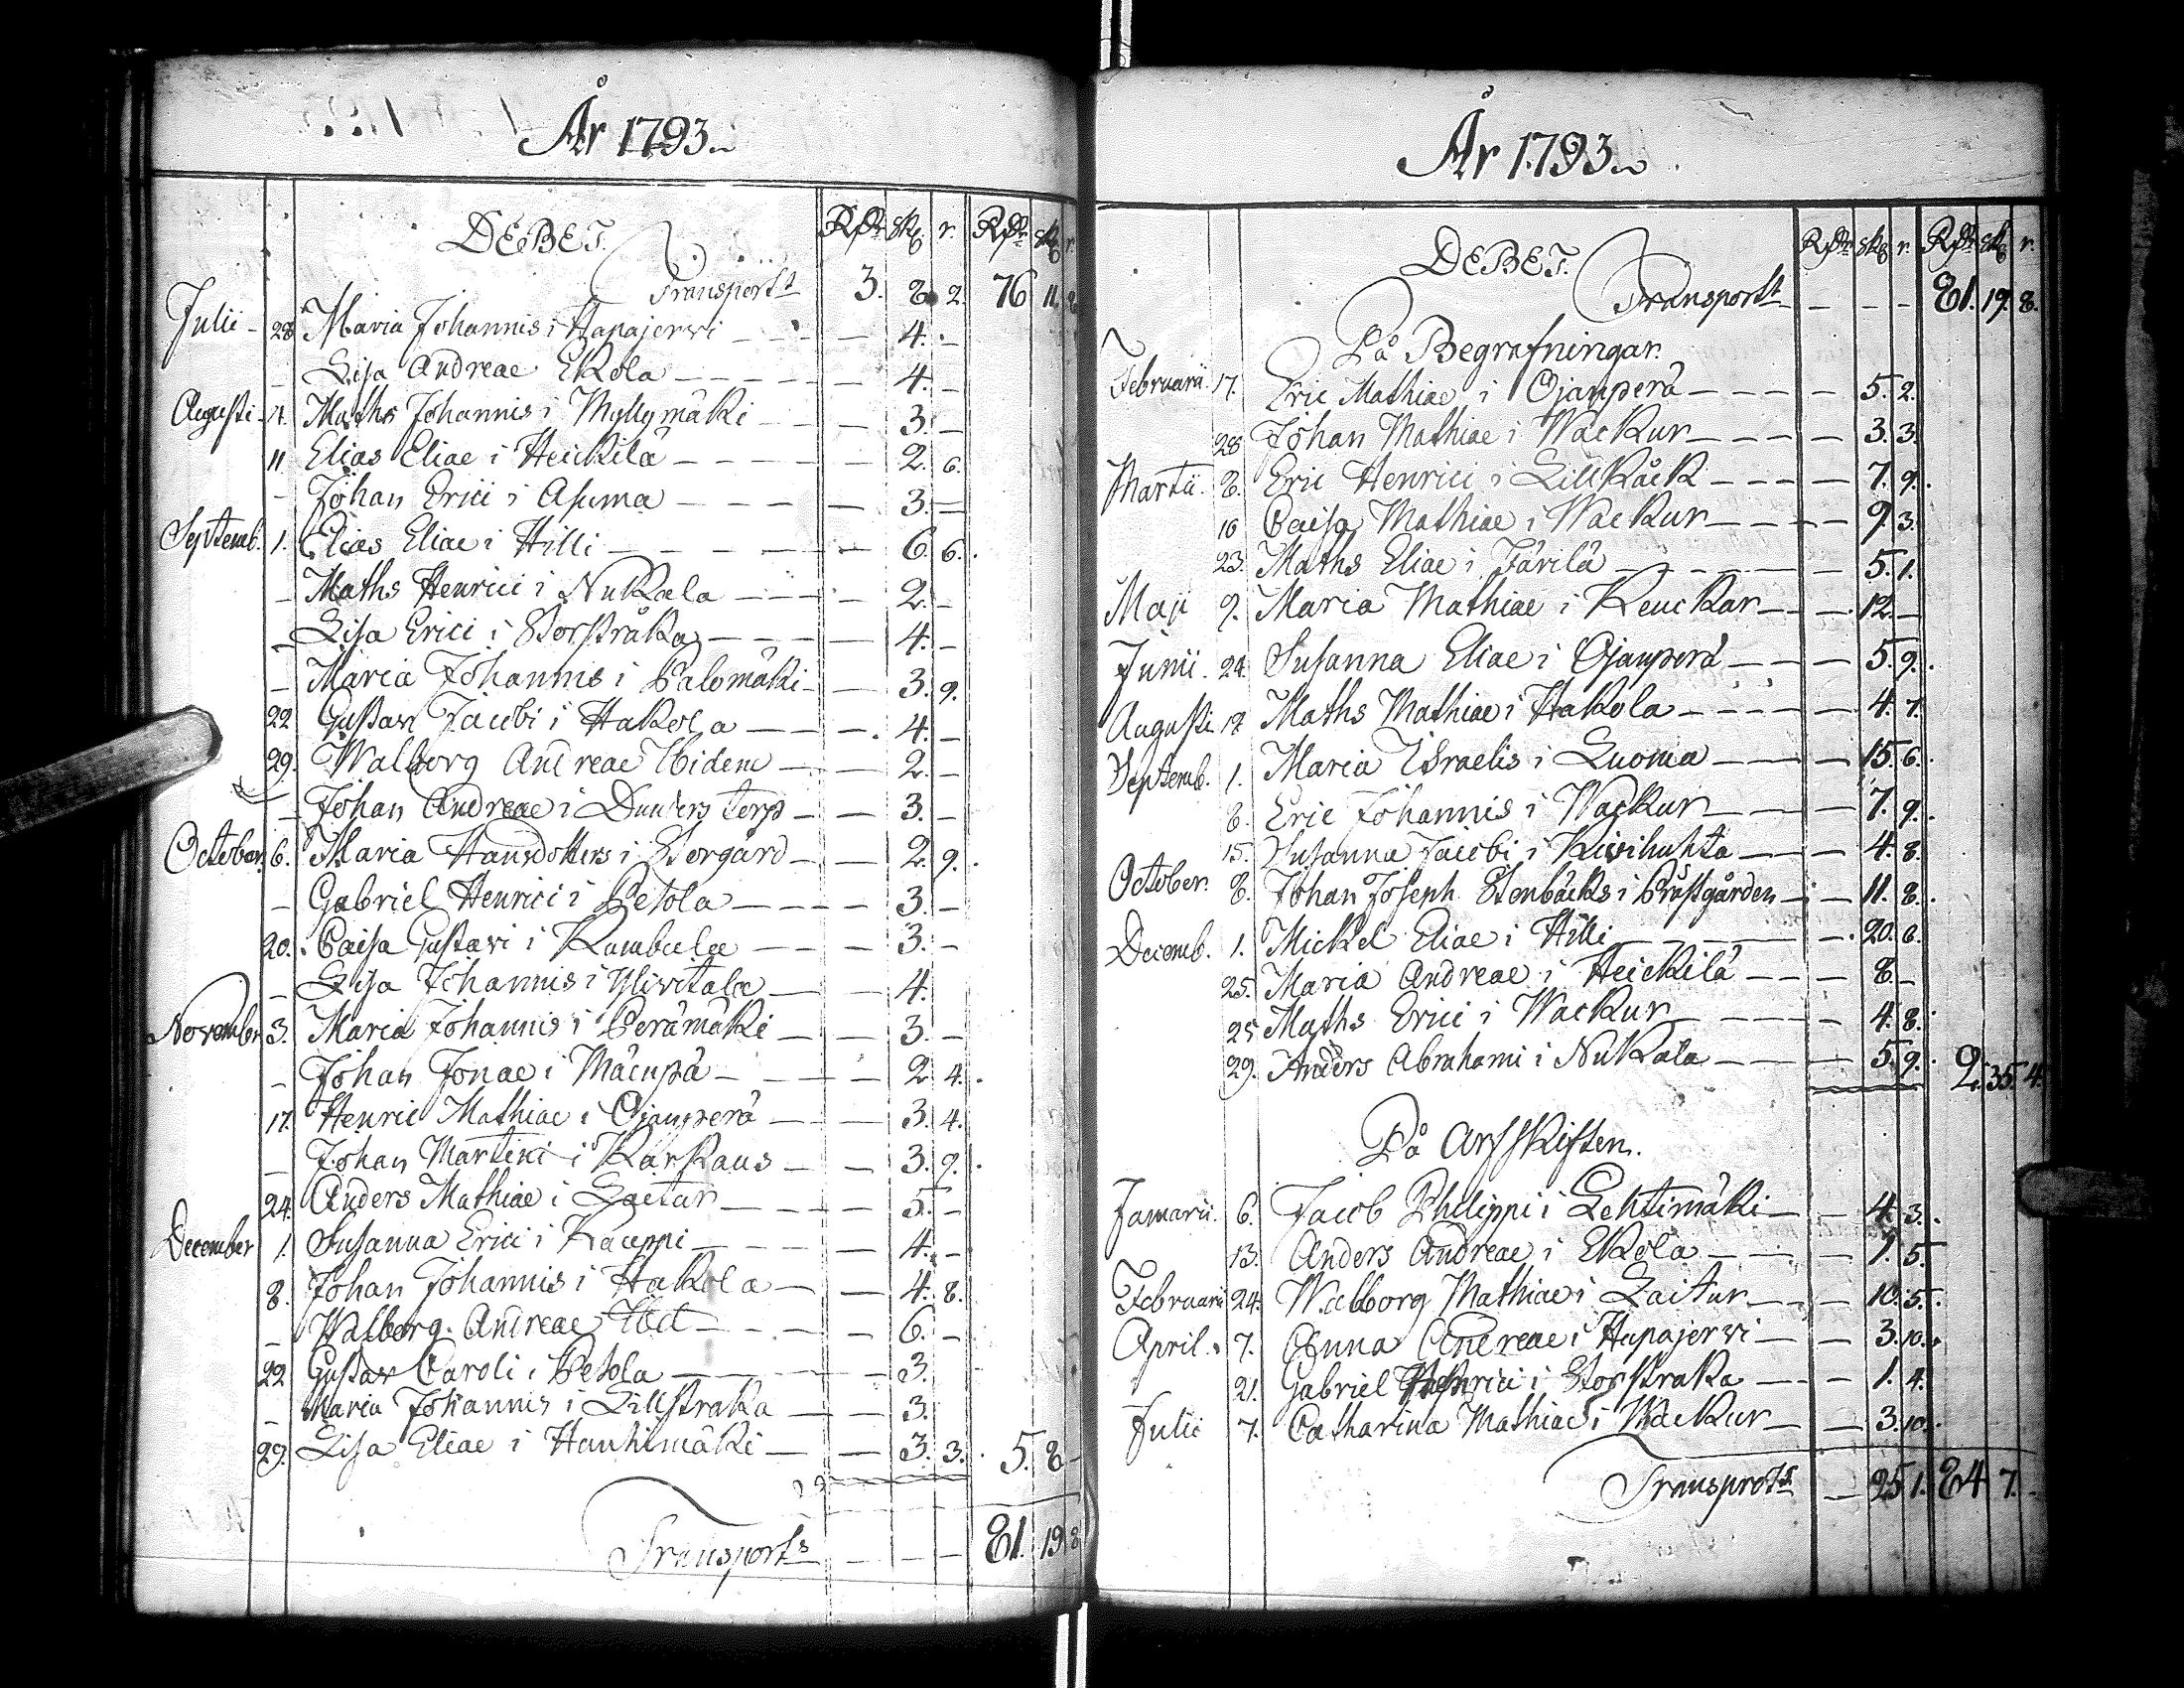 År 1793.
DEBET. Rd:r sk. r. Rd:r sk. r.
Transport 3. 8. 2. 76 11. 8
Julii 28 Maria Johannis i Hapajerwi — 4. —
— Lisa Andreae Ekola — 4. —
Augusti 4. Maths Johannis i Myllymäki — 3. —
11 Elias Eliae i Heickilä — 2. 6.
— Johan Erici i Asuma — 3. —
Septemb. 1. Elias Eliae i Hilli — 6. 6.
— Maths Henrici i Nukala — 2. —
— Lisa Erici i Storstråka — 4. —
— Maria Johannis i Palomäki — 3. 9.
22 Gustav Jacobi i Hakola — 4. —
29. Walborg Andreae Ibidem — 2. —
— Johan Andreae i Dunders torp — 3. —
October. 6. Maria Hansdotters i Storgård — 2. 9.
— Gabriel Henrici i Petola — 3. —
20. Caisa Gustavi i Kambula — 3. —
— Lisa Johannis i Yliwitala — 4.
November 3. Maria Johannis i Perämäki — 3. —
— Johan Jonae i Mäenpä — 2 4.
17. Henric Mathiae i Ojanperä — 3. 4.
— Johan Martini i Karkaus — 3. 9.
24. Anders Mathiae i Saitur — 5. —
December 1. Susanna Erici i Kauppi — 4. —
8. Johan Johannis i Hakola — 4. 8.
— Walborg Andreae Ibd — 6. —
22 Gustav Caroli i Petola — 3.
— Maria Johannis i Lillstraka — 3.
29. Lisa Eliae i Hauhimäki — 3. 3. 5. 8 —
Transports — — — 81. 19 8
År 1793.
DEBET. Rd:r sk. r. Rd:r sk. r.
Transport — — — 81. 19. 8.
På Begrafningar.
Februarii. 17. Eric Mathiae i Ojanperä — 5. 2.
28 Johan Mathiae i Wackur — 3. 3.
Martii. 8. Eric Henrici i Lillkåck — 7. 9.
10 Caisa Mathiae i Wackur — 9. 3.
23. Maths Eliae i Järilä — 5. 1.
Maji 9. Maria Mathiae i Keuckar — 12. —
Junii. 24. Susanna Eliae i Ojanperä — 5. 9.
Augusti 17 Maths Mathiae i Hakola — 4. 7.
Septemb. 1. Maria Israelis i Luoma — 15. 6.
8. Eric Johannis i Wackur — 7. 9.
15. Susanna Jacobi i Kivihuhta — 4. 8.
October. 8. Johan Joseph Stenbäcks i Prästgården — 11. 8.
Decemb. 1. Mickel Eliae i Hilli — 20. 6.
25. Maria Andreae i Heickilä — 8. —
25 Maths Erici i Wackur — 4. 8.
29. Anders Abrahami i Nukala — 5. 9. 2. 35. 4.
På Arfskiften.
Januarii. 6. Jacob Philippi i Lehtimäki — 4 3.
13. Anders Andreae i Ekola — 1. 5.
Februarii 24. Walborg Mathiae i Saitur — 10. 5.
April. 7. Anna Andreae i Hapajerwi — 3. 10.
21. Gabriel Henrici i Storstraka — 1. 4.
Julii 7. Catharina Mathiae i Wackur — 3. 10.
Transports — 25 1. 84 7. —